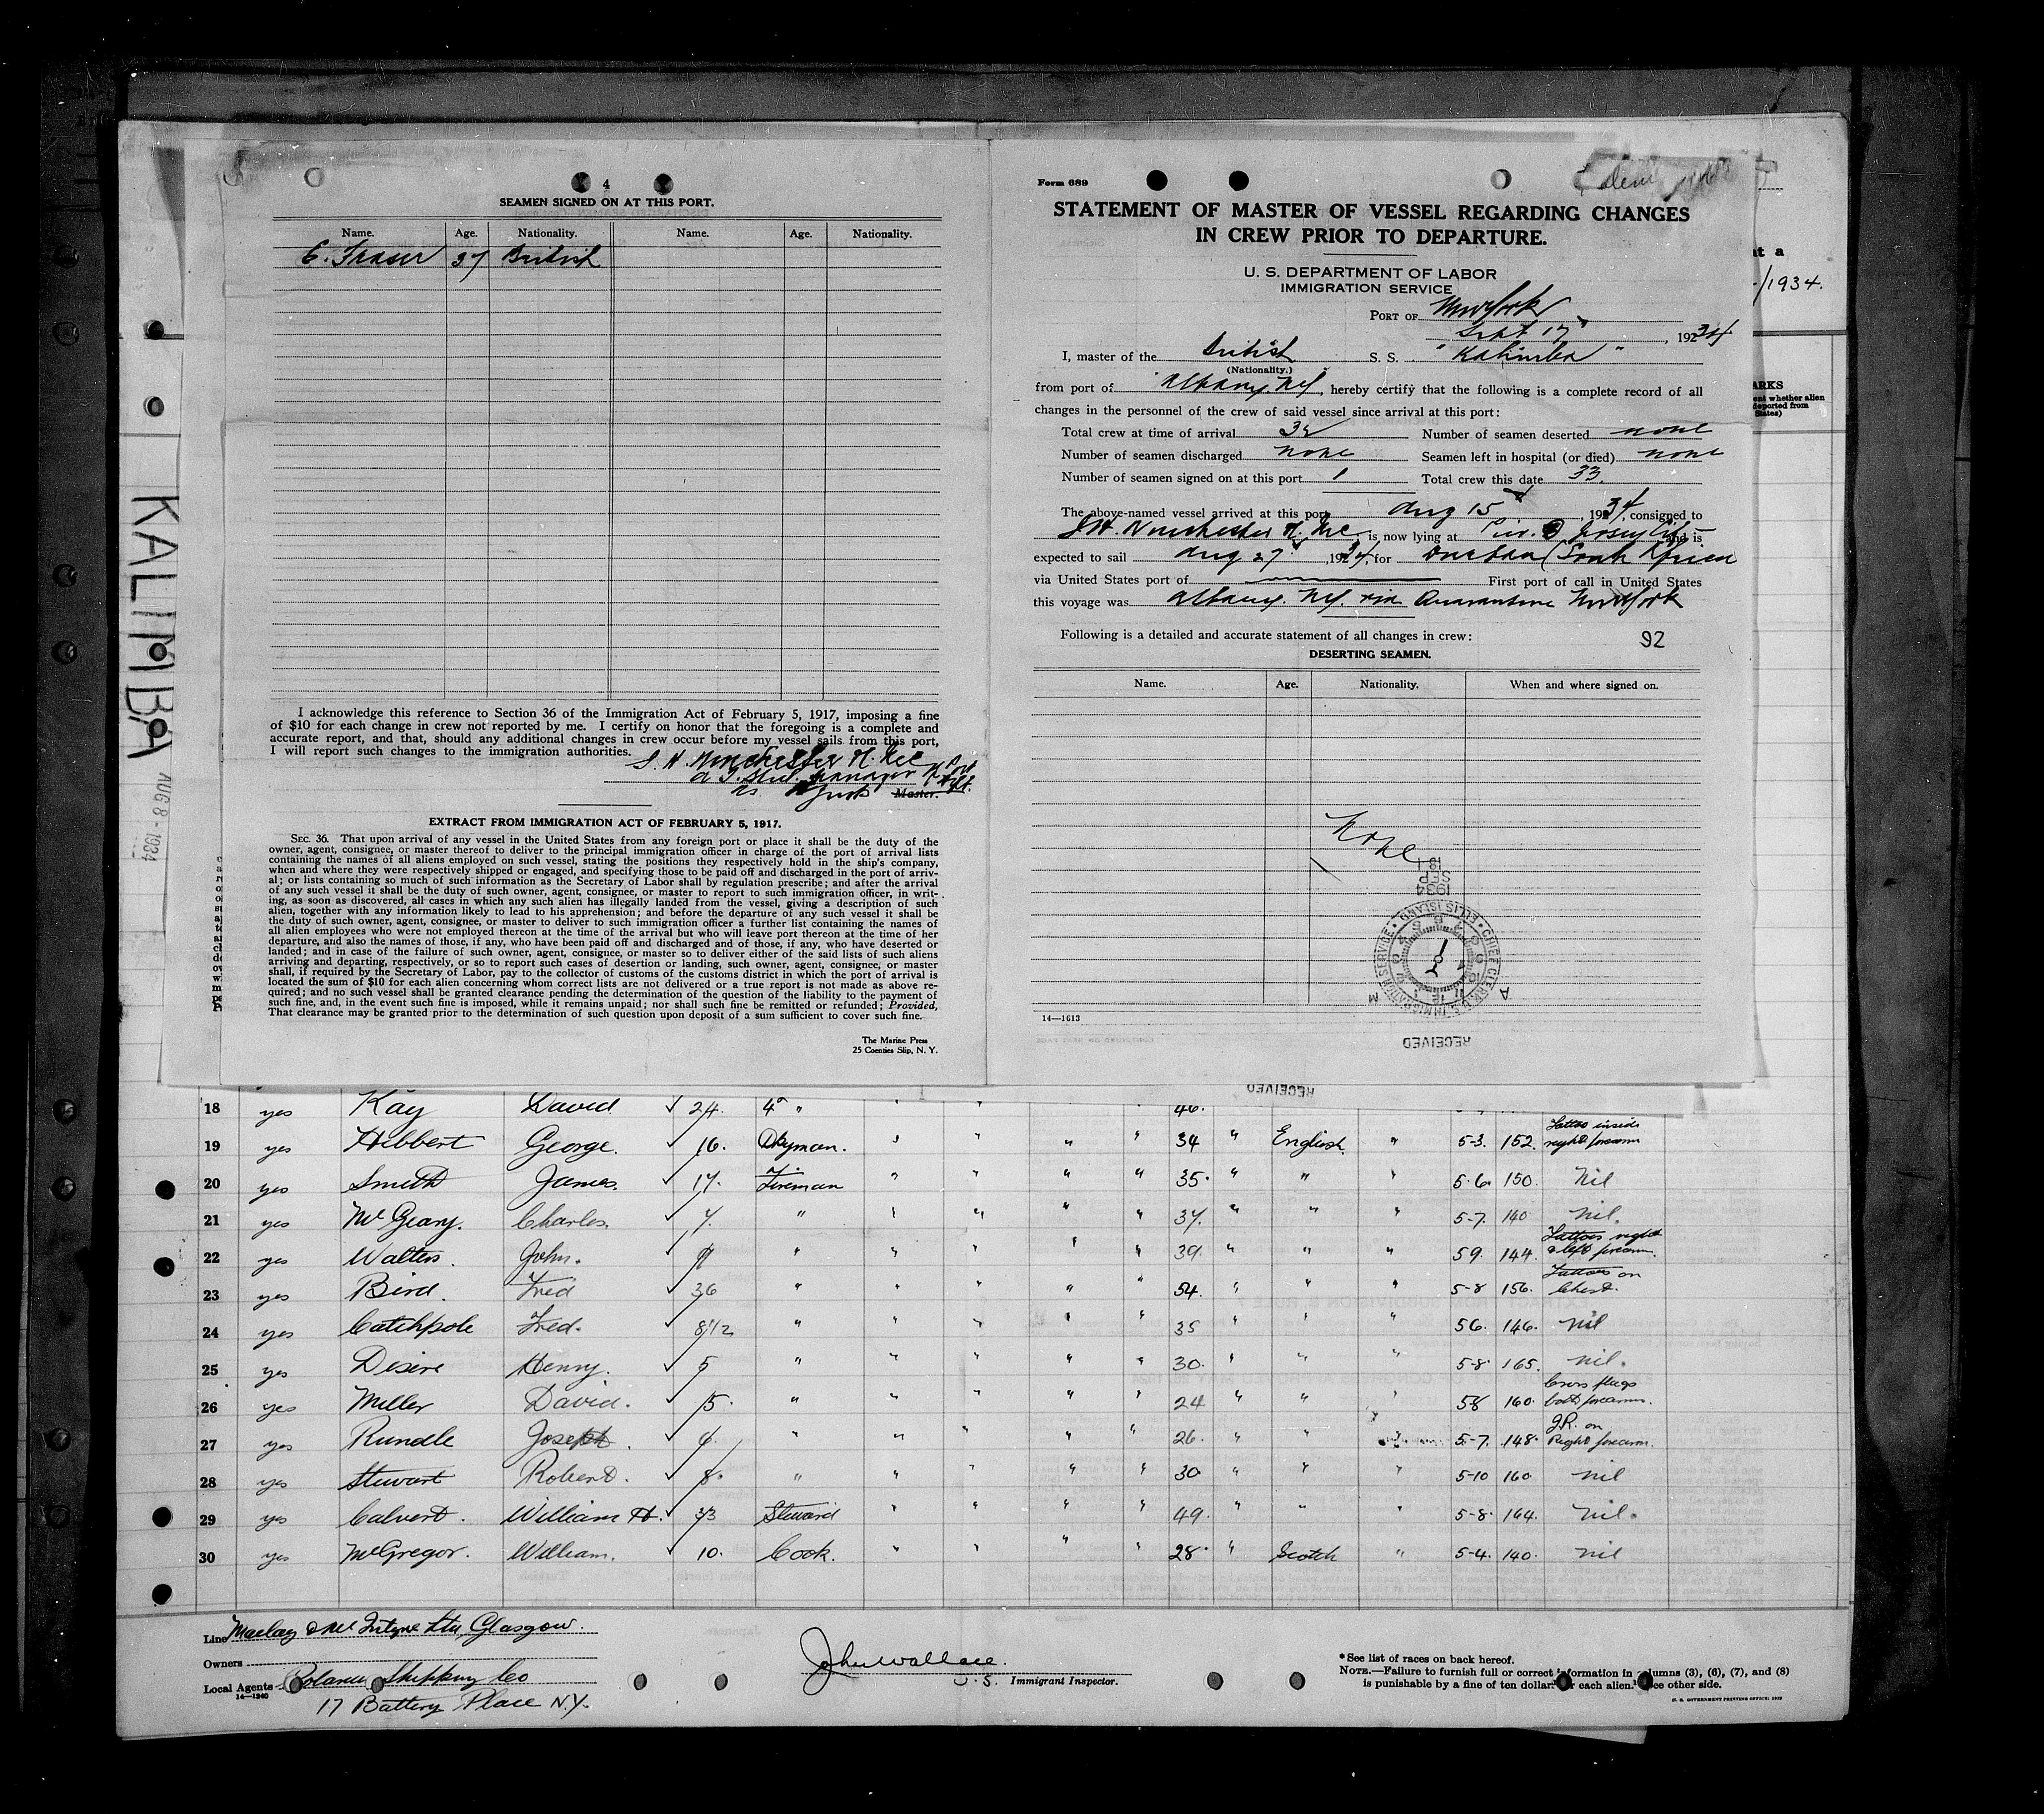 4
SEAMEN SIGNED ON AT THIS PORT.
Name. Age. Nationality. Name. Age. Nationality.
E. Fraser 37 British
I acknowledge this reference to Section 36 of the Immigration Act of February 5, 1917, imposing a fine
of $10 for each change in crew not reported by me. I certify on honor that the foregoing is a complete and
accurate report, and that, should any additional changes in crew occur before my vessel sails from this port,
I will report such changes to the immigration authorities.
Master.
EXTRACT FROM IMMIGRATION ACT OF FEBRUARY 5, 1917.
SEC. 36. That upon arrival of any vessel in the United States from any foreign port or place it shall be the duty of the
owner, agent, consignee, or master thereof to deliver to the principal immigration officer in charge of the port of arrival lists
containing the names of all aliens employed on such vessel, stating the positions they respectively hold in the ship's company,
when and where they were respectively shipped or engaged, and specifying those to be paid off and discharged in the port of arriv-
al; or lists containing so much of such information as the Secretary of Labor shall by regulation prescribe; and after the arrival
of any such vessel it shall be the duty of such owner, agent, consignee, or master to report to such immigration officer, in writ-
ing, as soon as discovered, all cases in which any such alien has illegally landed from the vessel, giving a description of such
alien, together with any information likely to lead to his apprehension; and before the departure of any such vessel it shall be
the duty of such owner, agent, consignee, or master to deliver to such immigration officer a further list containing the names of
all alien employees who were not employed thereon at the time of the arrival but who will leave port thereon at the time of her
departure, and also the names of those, if any, who have been paid off and discharged and of those, if any, who have deserted or
landed; and in case of the failure of such owner, agent, consignee, or master so to deliver either of the said lists of such aliens
arriving and departing, respectively, or so to report such cases of desertion or landing, such owner, agent, consignee, or master
shall, if required by the Secretary of Labor, pay to the collector of customs of the customs district in which the port of arrival is
located the sum of $10 for each alien concerning whom correct lists are not delivered or a true report is not made as above re-
quired; and no such vessel shall be granted clearance pending the determination of the question of the liability to the payment of
such fine, and, in the event such fine is imposed, while it remains unpaid; nor shall such fine be remitted or refunded; Provided,
That clearance may be granted prior to the determination of such question upon deposit of a sum sufficient to cover such fine.
The Marine Press
25 Coenties Slip, N. Y.
Form 689
STATEMENT OF MASTER OF VESSEL REGARDING CHANGES
IN CREW PRIOR TO DEPARTURE.
U. S. DEPARTMENT OF LABOR
IMMIGRATION SERVICE
PORT OF New York
Sept 17, 1934
I, master of the British S. S. "Kalimba"
(Nationality.)
from port of Albany. NY, hereby certify that the following is a complete record of all
changes in the personnel of the crew of said vessel since arrival at this port:
Total crew at time of arrival 32 Number of seamen deserted none
Number of seamen discharged none Seamen left in hospital (or died) none
Number of seamen signed on at this port 1 Total crew this date 33.
The above-named vessel arrived at this port Aug 15, 1934, consigned to
J.H. Winchester & Inc is now lying at Pier Jersey City and is
expected to sail Aug 27, 1934, for Durban (South Africa
via United States port of First port of call in United States
this voyage was Albany. NY. via Quarantine New York
Following is a detailed and accurate statement of all changes in crew: 92
DESERTING SEAMEN.
Name. Age. Nationality. When and where signed on.
None
1934 SEP 18
CHIEF CLERK U.S. IMMIGRATION SERVICE ELLIS ISLAND
A M
RECEIVED
14—1613
at a
/1934.
ARKS
ent whether alien
deported from
States)
KALIMBA
AUG 8 - 1934
RECEIVED
18 yes Kay David ✓ 24. 4th " " " 46.
19 yes Hibbert George. ✓ 16. Dkyman. " " " " 34 " English " 5-3. 152. Tattoo inside right forearm
20 yes Smith James. ✓ 17. Fireman " " " " 35. " " " 5.6. 150. Nil
21 yes McGeary. Charles. ✓ 7. " " " " " 37. " " " 5-7. 140 nil.
22 yes Walters. John. ✓ 9 " " " " " 39. " " " 59. 144. Tattoos right & left forearm.
23 yes Bird. Fred ✓ 36 " " " " " 54. " " " 5-8 156. Tattoos on Chest.
24 yes Catchpole Fred. ✓ 8 1/2 " " " " " 35 " " " 56. 146. nil
25 yes Desire Henry. ✓ 5 " " " " " 30. " " " 5-8. 165. nil.
26 yes Miller David. ✓ 5. " " " " " 24 " " " 58 160. Cross flags both forearms.
27 yes Rundle Joseph. ✓ 4. " " " " " 26. " " " 5-7. 148. J.R. on Right forearm.
28 yes Stewart Robert. ✓ 8. " " " " " 30 " " " 5-10 160 nil
29 yes Calvert. William H. ✓ 33 Steward " " " " 49. " " " 5-8. 164. nil.
30 yes McGregor. William. ✓ 10. Cook. " " " " 28. " Scotch " 5-4. 140. nil
Line Maclay & McIntyre Ltd, Glasgow.
Owners
Local Agents Shipping Co
14—1240
17 Battery Place N.Y.
John Wallace.
U.S. Immigrant Inspector.
*See list of races on back hereof.
NOTE.—Failure to furnish full or correct information in columns (3), (6), (7), and (8)
is punishable by a fine of ten dollars for each alien. See other side.
U. S. GOVERNMENT PRINTING OFFICE: 1933